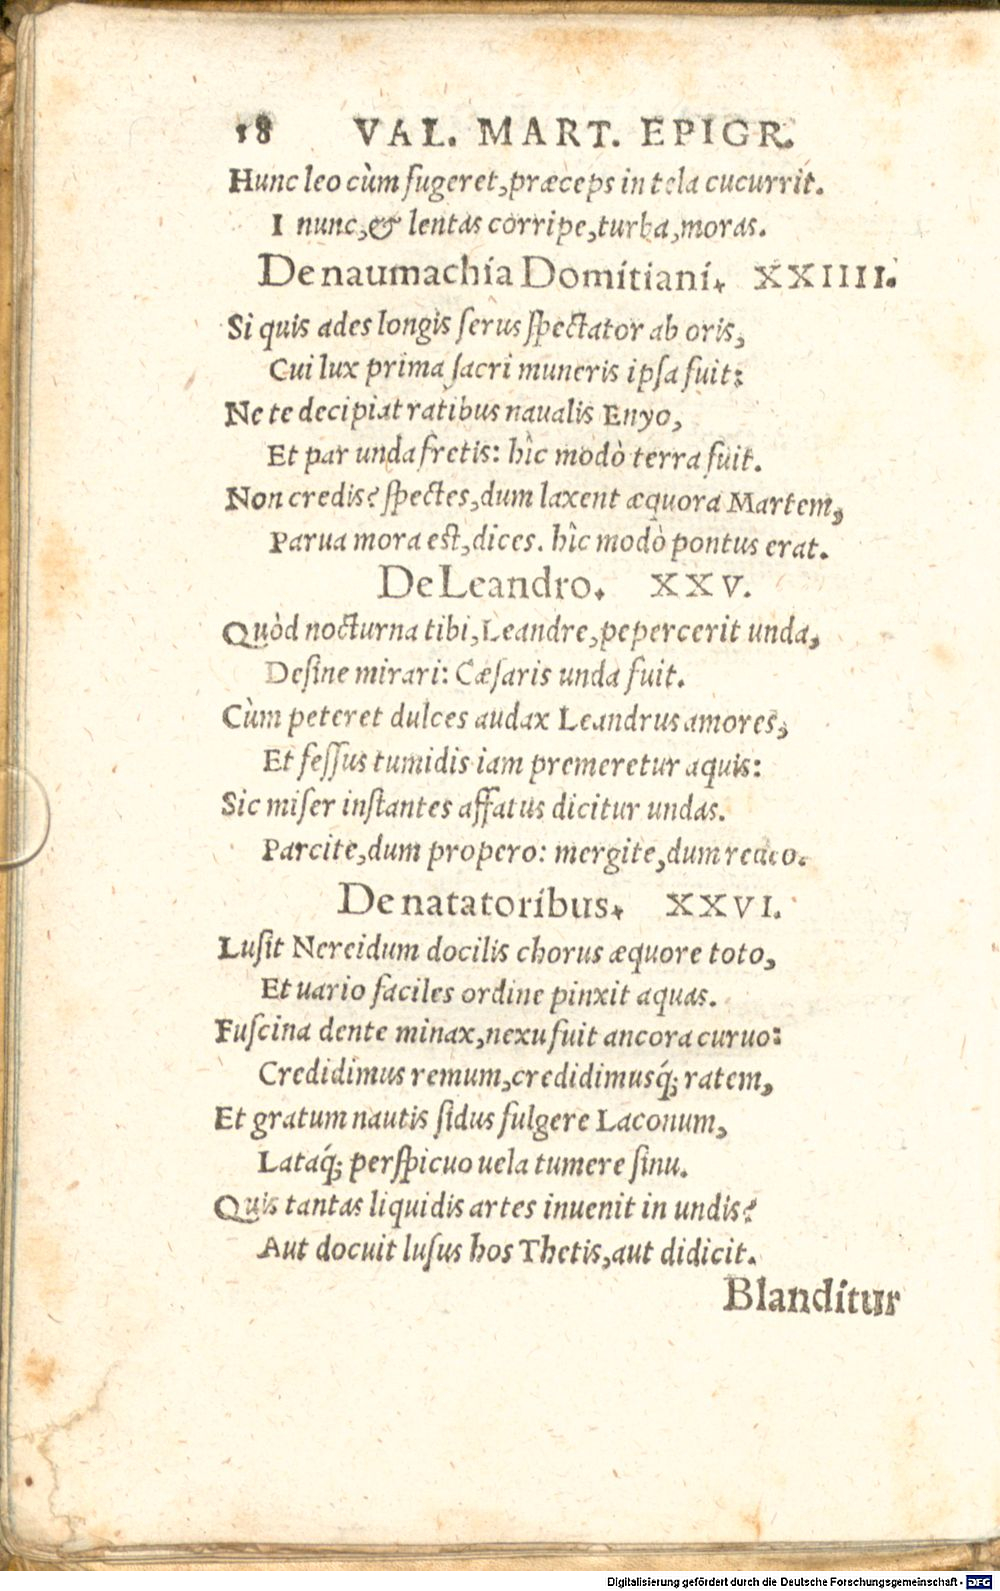 18 VAL. MART. EPIGR.
Hunc leo cùm fugeret, præceps in tela cucurrit.
I nunc, & lentas corripe, turba, moras.
De naumachia Domitiani. XXIIII.
Si quis ades longis serus spectator ab oris,
Cui lux prima sacri muneris ipsa fuit:
Ne te decipiat ratibus naualis Enyo,
Et par unda fretis: hîc modò terra fuit.
Non credis? spectes, dum laxent æquora Martem,
Parua mora est, dices. hîc modò pontus erat.
De Leandro. XXV.
Quòd nocturna tibi, Leandre, pepercerit unda,
Desine mirari: Cæsaris unda fuit.
Cùm peteret dulces audax Leandrus amores,
Et fessus tumidis iam premeretur aquis:
Sic miser instantes affatus dicitur undas.
Parcite, dum propero: mergite, dum redeo.
De natatoribus. XXVI.
Lusit Nereidum docilis chorus æquore toto,
Et uario faciles ordine pinxit aquas.
Fuscina dente minax, nexu fuit ancora curuo:
Credidimus remum, credidimusq́; ratem,
Et gratum nautis sidus fulgere Laconum,
Lataq́; perspicuo uela tumere sinu.
Quis tantas liquidis artes inuenit in undis?
Aut docuit lusus hos Thetis, aut didicit.
Blanditur
Digitalisierung gefördert durch die Deutsche Forschungsgemeinschaft - DFG